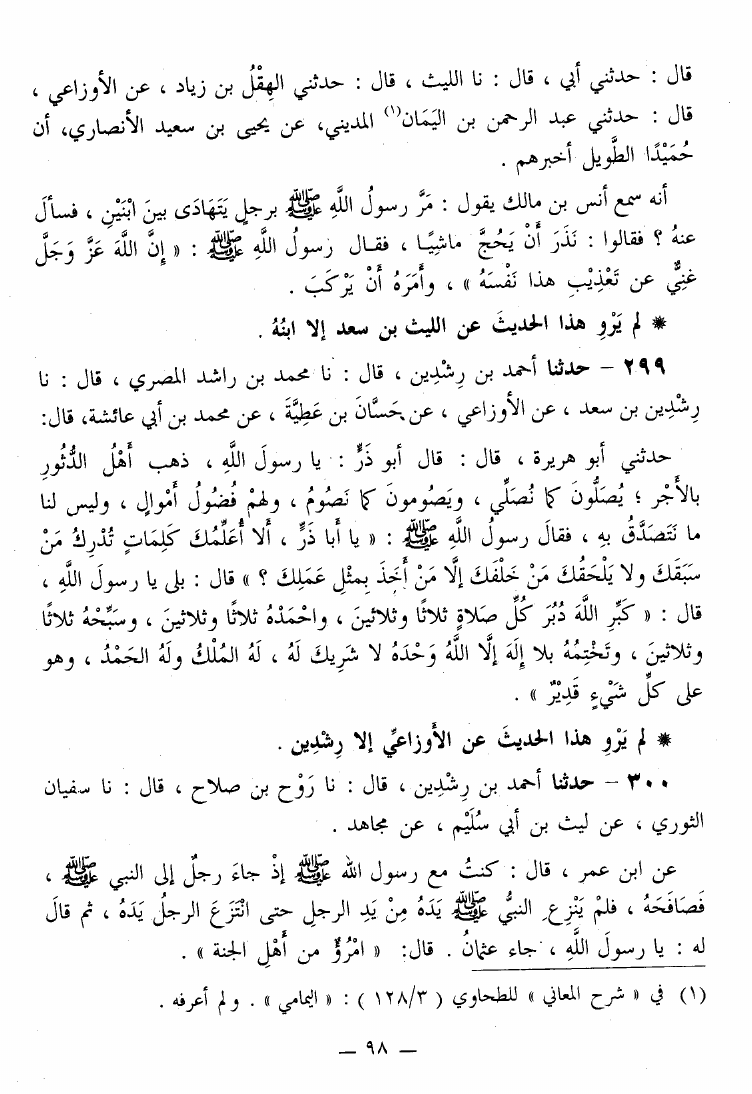 قال : حدثني أبي ، قال : نا الليث ، قال : حدثني الهِقْلُ بن زياد ، عن الأوزاعي ،
قال : حدثني عبد الرحمن بن اليَمَان(١) المديني، عن يحيى بن سعيد الأنصاري، أن
حُمَيْدًا الطَّويل أخبرهم .
أنه سمع أنس بن مالك يقول : مَرَّ رسولُ اللَّهِ ﷺ برجلٍ يَتَهَادَى بينَ ابْنَيْنِ ، فسألَ
عنهُ ؟ فقالوا : نَذَرَ أَنْ يَحُجَّ ماشِيًا ، فقـال رسولُ اللَّهِ ﷺ : « إِنَّ اللَّهَ عَزَّ وَجَلَّ
غنِيٌّ عن تَعْذِيْبِ هذا نَفْسَهُ » ، وأَمَرَهُ أَنْ يَرْكَبَ .
* لم يَرْوِ هذا الحديثَ عن الليث بن سعد إلا ابنُهُ .
٢٩٩ – حدثنا أحمد بن رِشْدِين ، قال : نا محمد بن راشد المصري ، قال : نا
رِشْدِين بن سعد ، عن الأوزاعي ، عن حَسَّانَ بن عَطِيَّةَ ، عن محمد بن أبي عائشة، قال:
حدثني أبو هريرة ، قال : قال أبو ذَرٍّ : يا رسولَ اللَّهِ ، ذهب أَهْلُ الدُّثُورِ
بالأَجْرِ ؛ يُصَلُّونَ كما نُصَلِّي ، ويَصُومونَ كما نَصُومُ ، ولهمْ فُضُولُ أَمْوالٍ ، وليس لنا
ما نَتَصَدَّقُ بِهِ ، فقالَ رسولُ اللَّهِ ﷺ : « يا أَبا ذَرٍّ ، أَلا أُعَلِّمُكَ كَلِمَاتٍ تُدْرِكُ مَنْ
سَبَقَكَ ولا يَلْحَقُكَ مَنْ خَلْفَكَ إِلَّا مَنْ أَخَذَ بِمثْلِ عَمَلِكَ ؟ » قال : بلى يا رسولَ اللَّهِ ،
قال : « كَبِّرِ اللَّهَ دُبُرَ كُلِّ صَلاةٍ ثلاثًا وثلاثينَ ، واحْمَدْهُ ثلاثًا وثلاثينَ ، وسَبِّحْهُ ثلاثًا
وثلاثينَ ، وتَخْتِمُهُ بلا إِلَهَ إِلَّا اللَّهُ وَحْدَهُ لا شَرِيكَ لَهُ ، لَهُ المُلْكُ ولَهُ الحَمْدُ ، وهو
على كلِّ شَيْءٍ قَدِيْرٌ » .
* لم يَرْوِ هذا الحديثَ عن الأَوزاعيِّ إلا رِشْدِين .
٣٠٠ – حدثنا أحمد بن رِشْدِين ، قال : نا رَوْح بن صلاح ، قال : نا سفيان
الثوري ، عن ليث بن أبي سُلَيْم ، عن مجاهد .
عن ابن عمر ، قال : كنتُ مع رسول الله ﷺ إذْ جاءَ رجلٌ إلى النبي ﷺ ،
فَصَافَحَهُ ، فلمْ يَنْزِعِ النبيُّ ﷺ يَدَهُ مِنْ يَدِ الرجلِ حتى انْتَزَعَ الرجلُ يَدَهُ ، ثم قالَ
له : يا رسولَ اللَّهِ ، جاء عثمانُ . قال: « امْرُؤٌ من أَهْلِ الجنة » .
(١) في « شرح المعاني » للطحاوي ( ١٢٨/٣ ) : « اليمامي » . ولم أعرفه .
– ٩٨ –